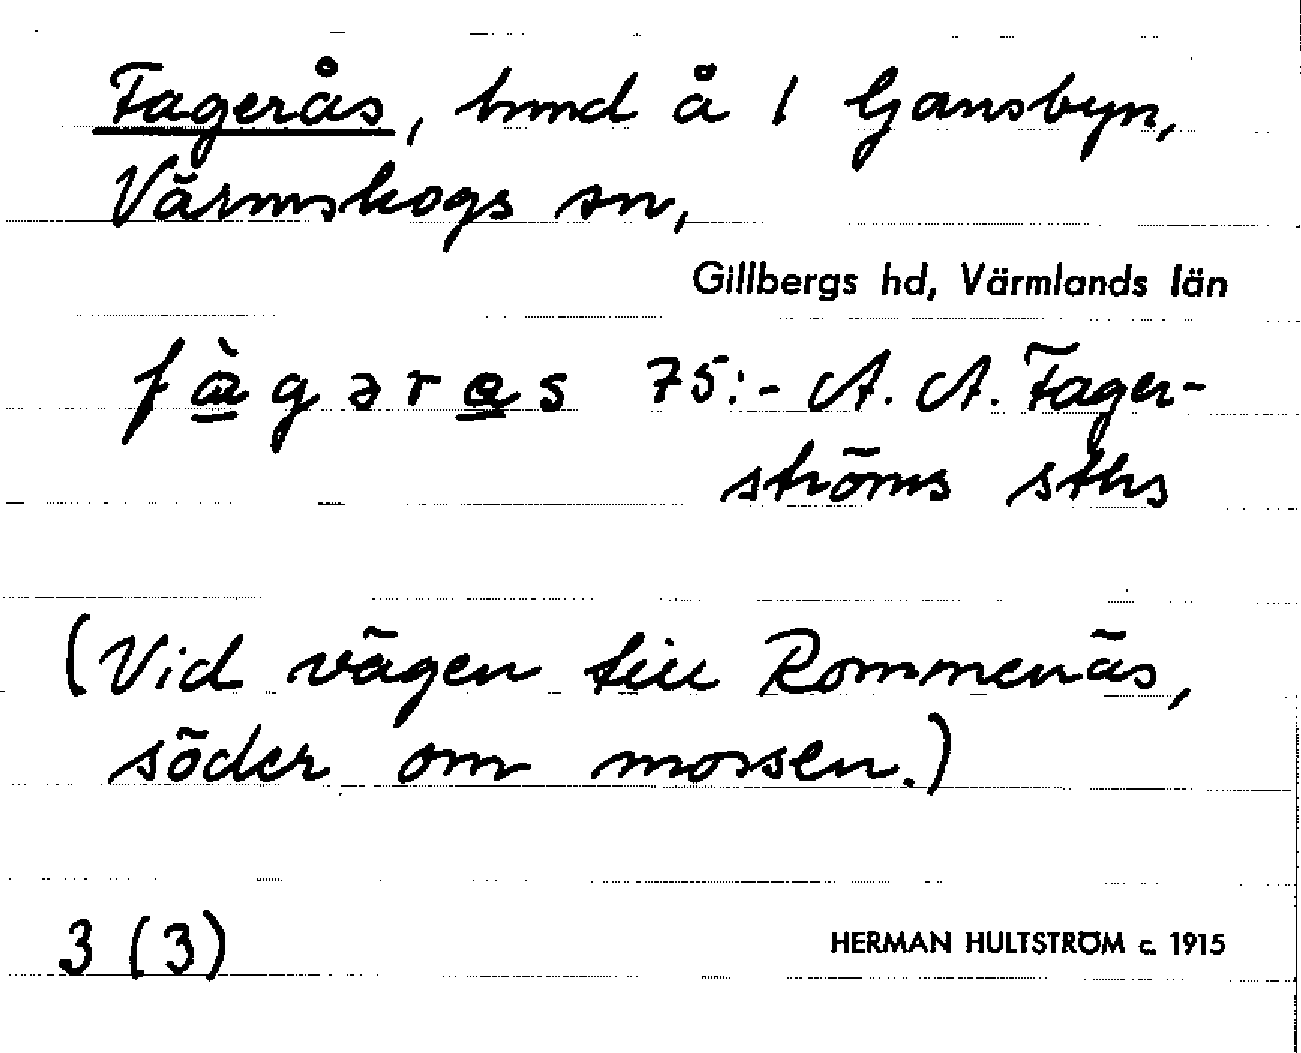 Fagerås, lund å 1 Gansbyn,
Värmskogs sn,
Gillbergs hd, Värmlands län
fàgəras 75:- A. A. Fager-
ströms sths
(Vid vägen till Rommenäs,
söder om mossen.)
3 (3)
HERMAN HULTSTRÖM c. 1915